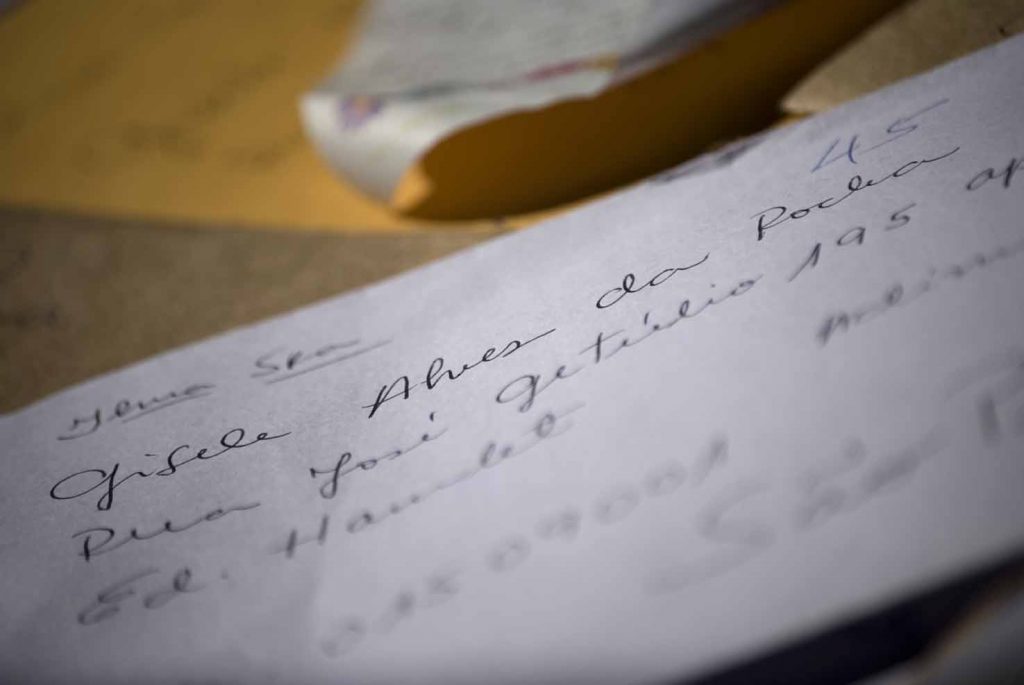 45
Ilma Sra
Gisele Alves da Rocha
Rua José Getúlio 195 ap
Ed. Hamlet
São